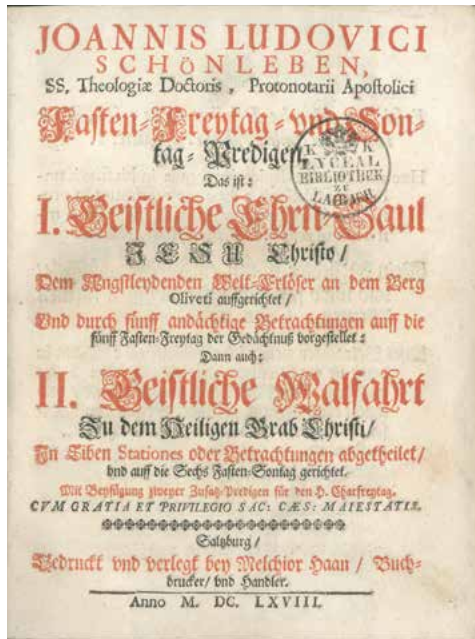 JOANNIS LUDOVICI
SCHÖNLEBEN,
SS. Theologiæ Doctoris, Protonotarii Apostolici
Fasten-Freytag-vnd Son-
tag-Predigen,
Das ist:
I. Geistliche Ehrn Saul
JESU Christo /
Dem Angstleydenden Welt-Erlöser an dem Berg
Oliveti auffgerichtet /
Vnd durch fünff andächtige Betrachtungen auff die
fünff Fasten-Freytag der Gedächtnuß vorgestellet:
Dann auch:
II. Geistliche Walfahrt
Zu dem Heiligen Grab Christi/
In Siben Stationes oder Betrachtungen abgetheilet/
vnd auff die Sechs Fasten-Sontag gerichtet.
Mit Beyfügung zweyer Zusatz-Predigen für den H. Charfreytag.
CVM GRATIA ET PRIVILEGIO SAC: CÆS: MAIESTATIS.
Saltzburg /
Gedruckt vnd verlegt bey Melchior Haan / Buch-
drucker/ vnd Handler.
Anno M. DC. LXVIII.
K K
LYCEAL
BIBLIOTHEK
ZU
LAIBACH